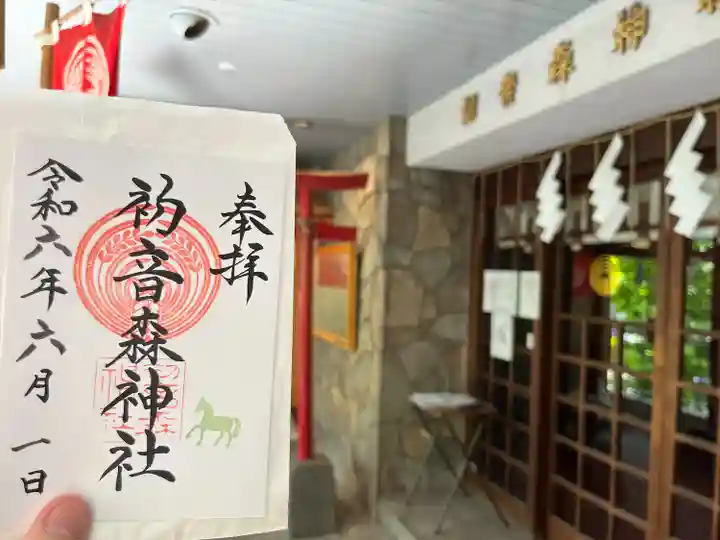 奉拝
初音森神社
令和六年六月一日
初音森神